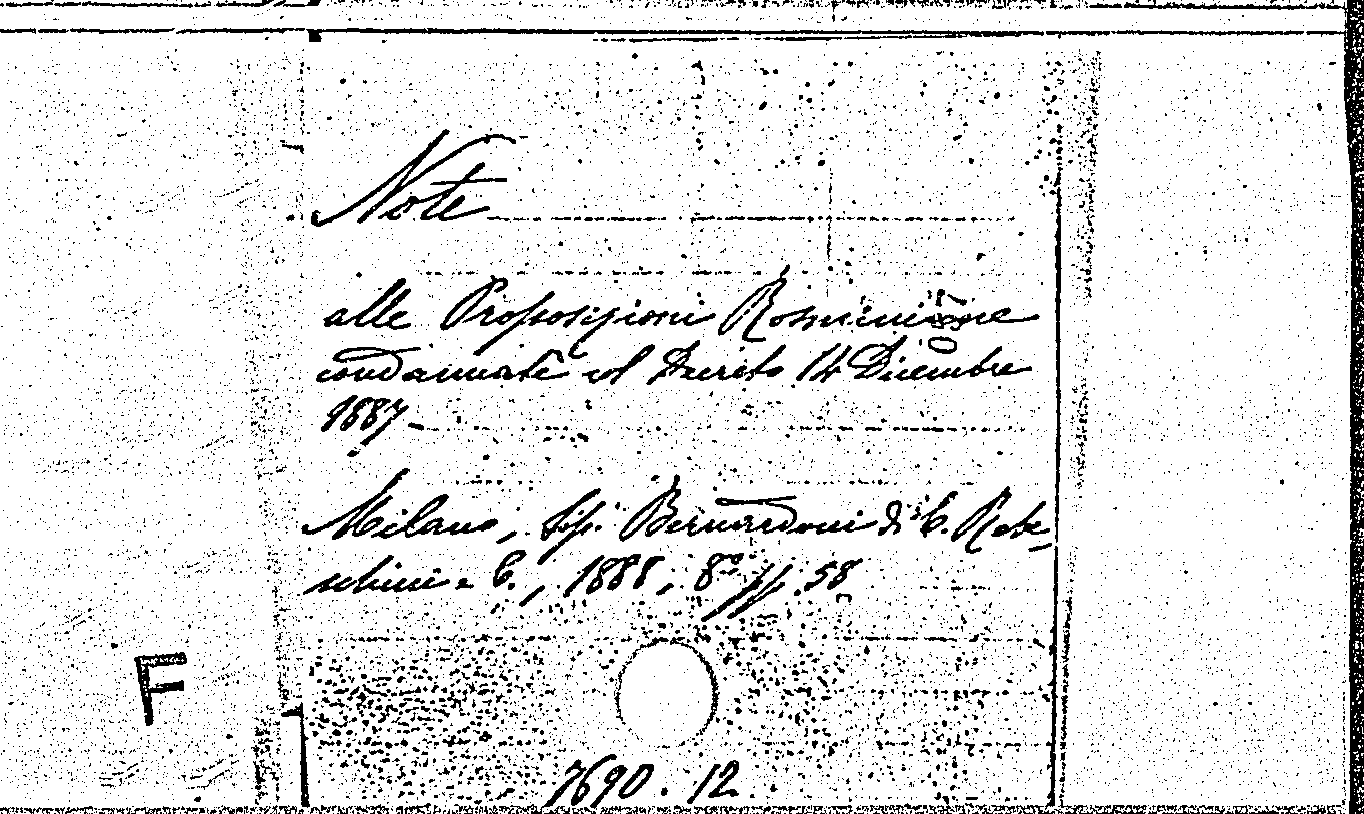 Note
alle Proposizioni Rosminiane
condannate col Decreto 14 Dicembre
1887-
Milano, Tip. Bernardoni di C. Rebe-
schini e C., 1888, 8° pp. 58
F
7690.12